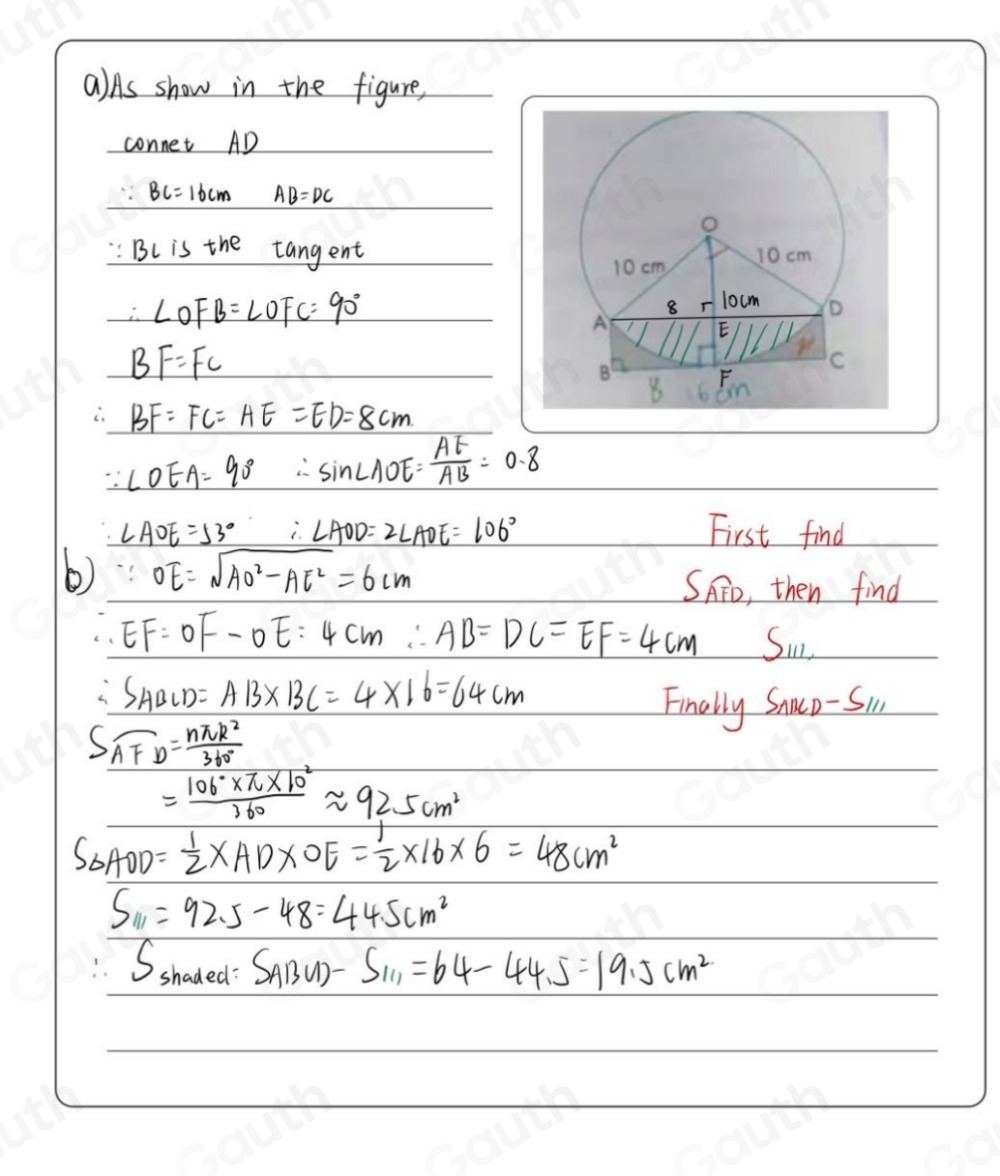 a) As show in the figure,
connet AD
∵ BC=16cm AB=DC
∵ BC is the tangent
∴ ∠OFB=∠OFC=90°
BF=FC
∴ BF=FC=AE=ED=8cm.
∵ ∠OEA=90° ∴ sin∠AOE=AE/AB=0.8
∴ ∠AOE=53° ∴ ∠AOD=2∠AOE=106°
b) ∵ OE=√AO²-AE²=6cm
∴ EF=OF-OE=4cm ∴ AB=DC=EF=4cm
∴ SABCD=AB×BC=4×16=64cm
SAFD=nπR²/360°
=106°×π×10²/360≈92.5cm²
S△AOD=1/2×AD×OE=1/2×16×6=48cm²
S///=92.5-48=44.5cm²
∴ Sshaded=SABCD-S///=64-44.5=19.5cm²
First find
SAFD, then find
S///,
Finally SABCD-S///
O
10 cm
10 cm
8
10cm
A
E
D
B
F
C
8
16cm
Gauth